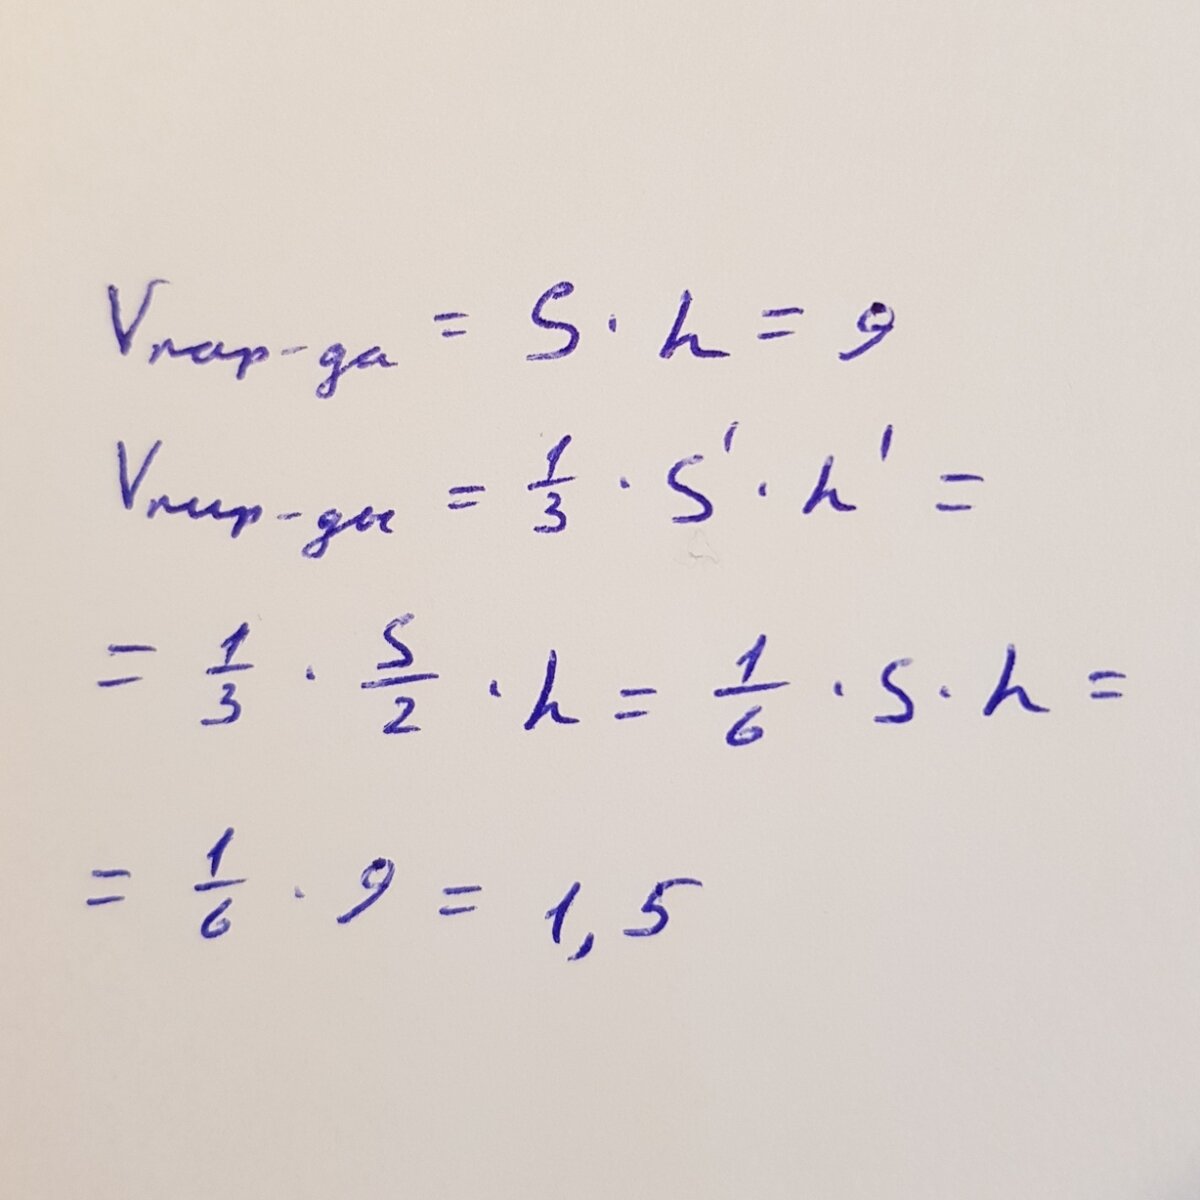 Vпар-да = S · h = 9
Vпир-ды = 1/3 · S' · h' =
= 1/3 · S/2 · h = 1/6 · S · h =
= 1/6 · 9 = 1,5